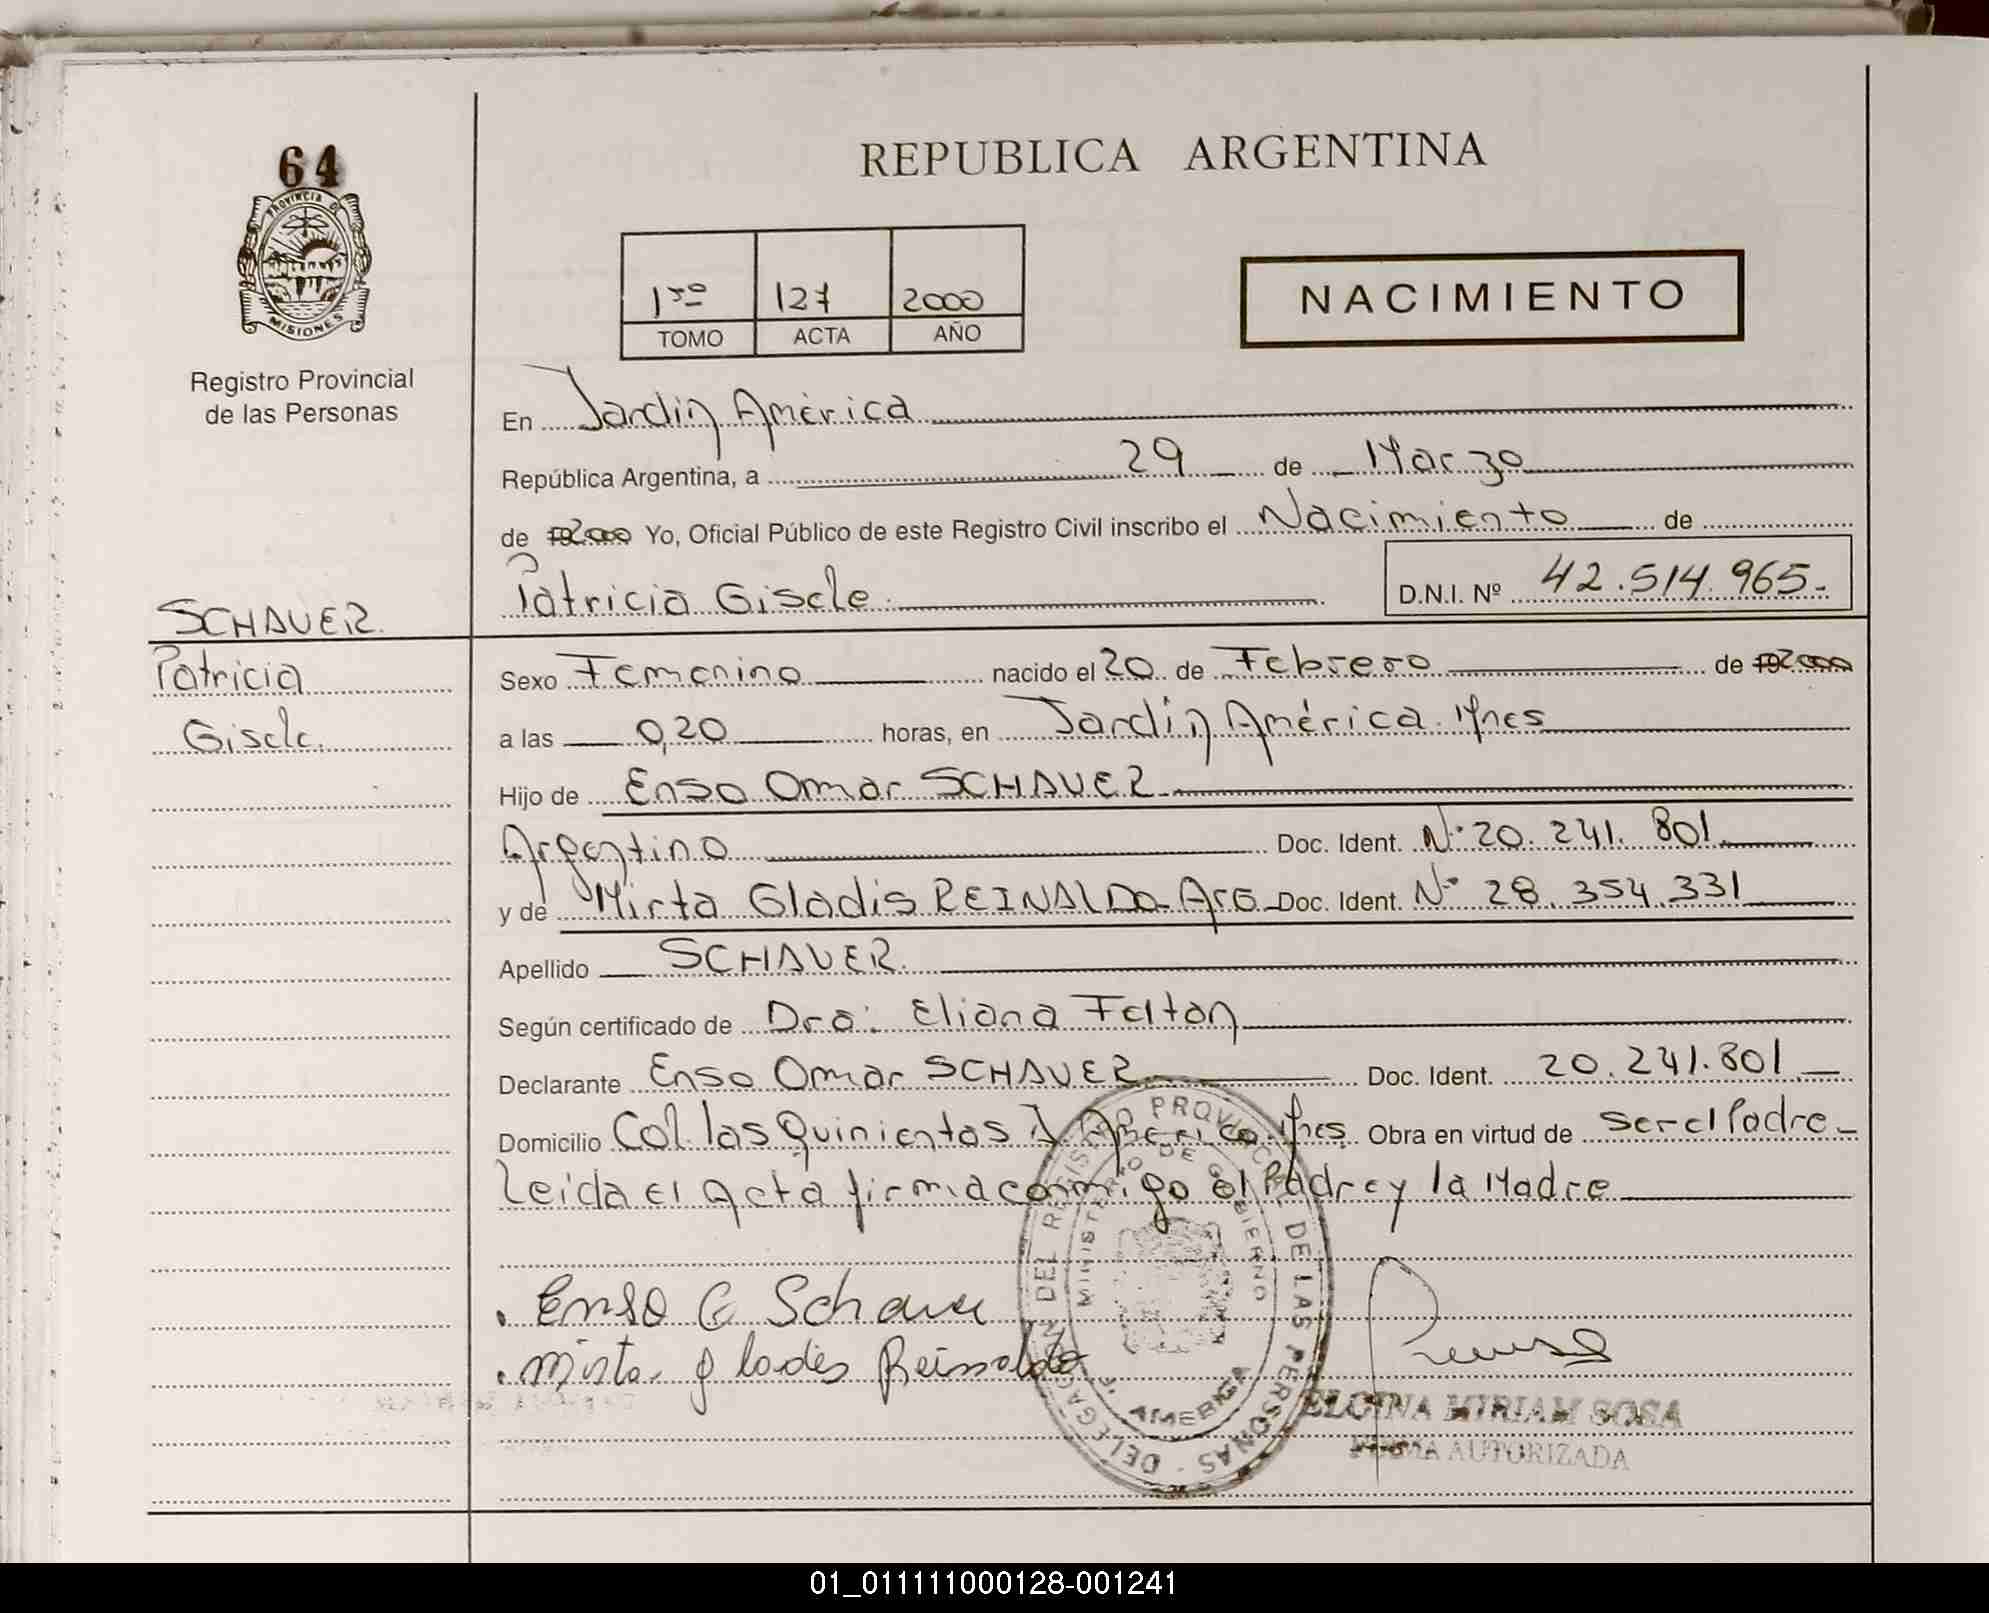 64
PROVINCIA D
MISIONES
Registro Provincial
de las Personas
REPUBLICA ARGENTINA
1ro 127 2000
TOMO ACTA AÑO
NACIMIENTO
En Jardin América
República Argentina, a 29 de Marzo
de 2.000 Yo, Oficial Público de este Registro Civil inscribo el Nacimiento de
Patricia Gisele. D.N.I. Nº 42.514.965.-
SCHAUER.
Patricia
Gisele.
Sexo Femenino nacido el 20 de Febrero de 2.000
a las 0,20 horas, en Jardin América. Mnes
Hijo de Enso Omar SCHAUER
Argentino Doc. Ident. Nº 20.241.801.
y de Mirta Gladis REINALDO Arg Doc. Ident. Nº 28.354.331
Apellido SCHAUER.
Según certificado de Dra: Eliana Felton
Declarante Enso Omar SCHAUER Doc. Ident. 20.241.801
Domicilio Col. las Quinientas J. America. Mnes. Obra en virtud de ser el Padre-
Leida el Acta firma conmigo el Padre y la Madre
. Enso O Schauer
. Mirta gladis Reinaldo
DELEGACION DEL REGISTRO PROVINCIAL DE LAS PERSONAS
MINISTERIO DE GOBIERNO
J. AMERICA
ELCINA MIRIAM SOSA
FIRMA AUTORIZADA
01_011111000128-001241